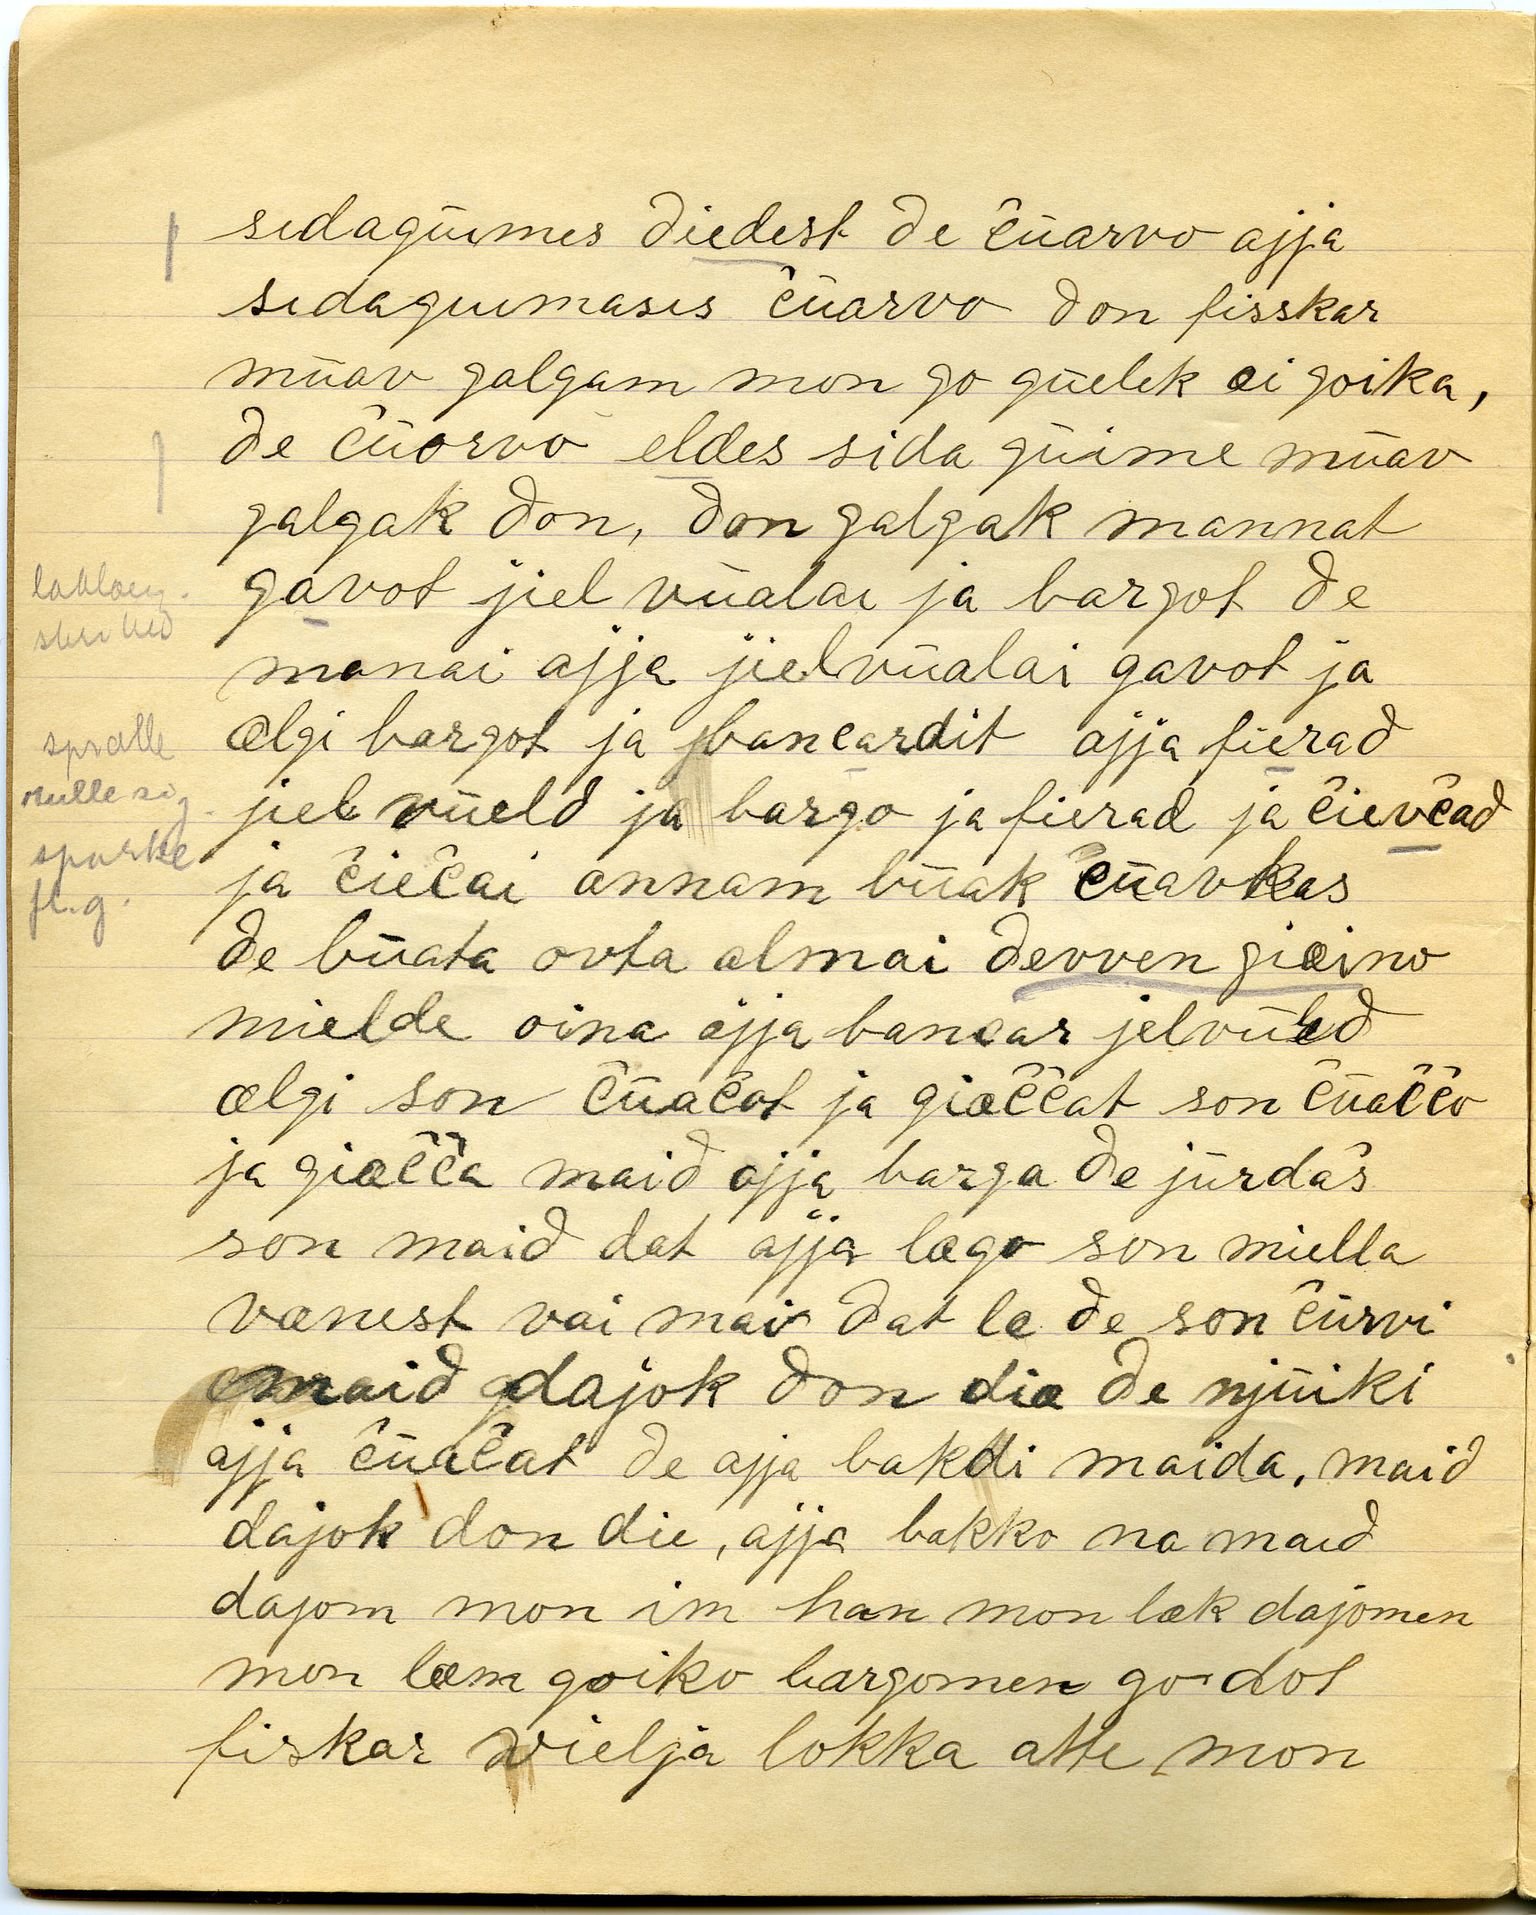 sidagüimes diedest de c̄üarvo ajja
sidaguimasis c̄üarvo don fisskar
müav galgam mon go güelek ei goika,
de c̄üorvo eldes sida güime müav
galgak don, don galgak mannat
gavot jiel vüalai ja bargot de
manai ajja jielvüalai gavot ja
ælgi bargot ja bancardit ajja fierad
jiel vüeld ja bargo ja fierad ja c̄ievc̄ad
ja c̄iec̄ai annam büak c̄üavkas
de büata ovta almai devven giæino
mielde oina ajja bancar jelvüled
ælgi son c̄üac̄at ja giæc̄c̄at son c̄üac̄c̄o
ja giæc̄c̄a maid ajja barga de jürdas̄
son maid dat ajja lægo son miella
vænest vai mai dat le de son c̄ürvi
maid dajok don die de njüiki
ajja c̄üac̄at de ajja bakdi maida, maid
dajok don die, ajja bakko na maid
dajom mon im han mon læk dajomen
mon læm goiko bargomen go dot
fiskar vielja lokka atte mon
spralle
rulle sig
sparke
fl.g.